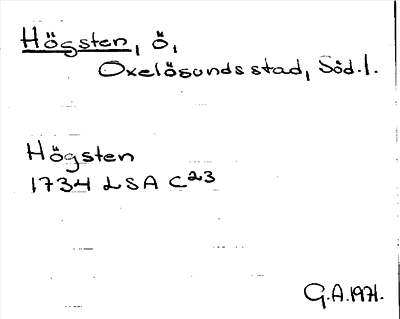 Högsten, ö,
Oxelösunds stad, Söd.l.
Högsten
1734 LSA C23
G.A. 1971.